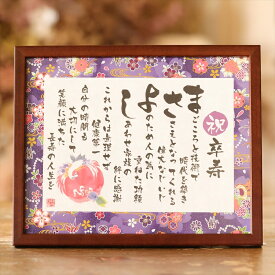 祝
卒寿
まごころと技術で
時代を築き
さささえとなってくれる
偉大なじいじ
よのため人の為に
重ねた功績
しあわせ家族の
絆に感謝
これからは無理せず
健康第一
自分の時間も
大切にして
笑顔に満ちた
長寿の人生を